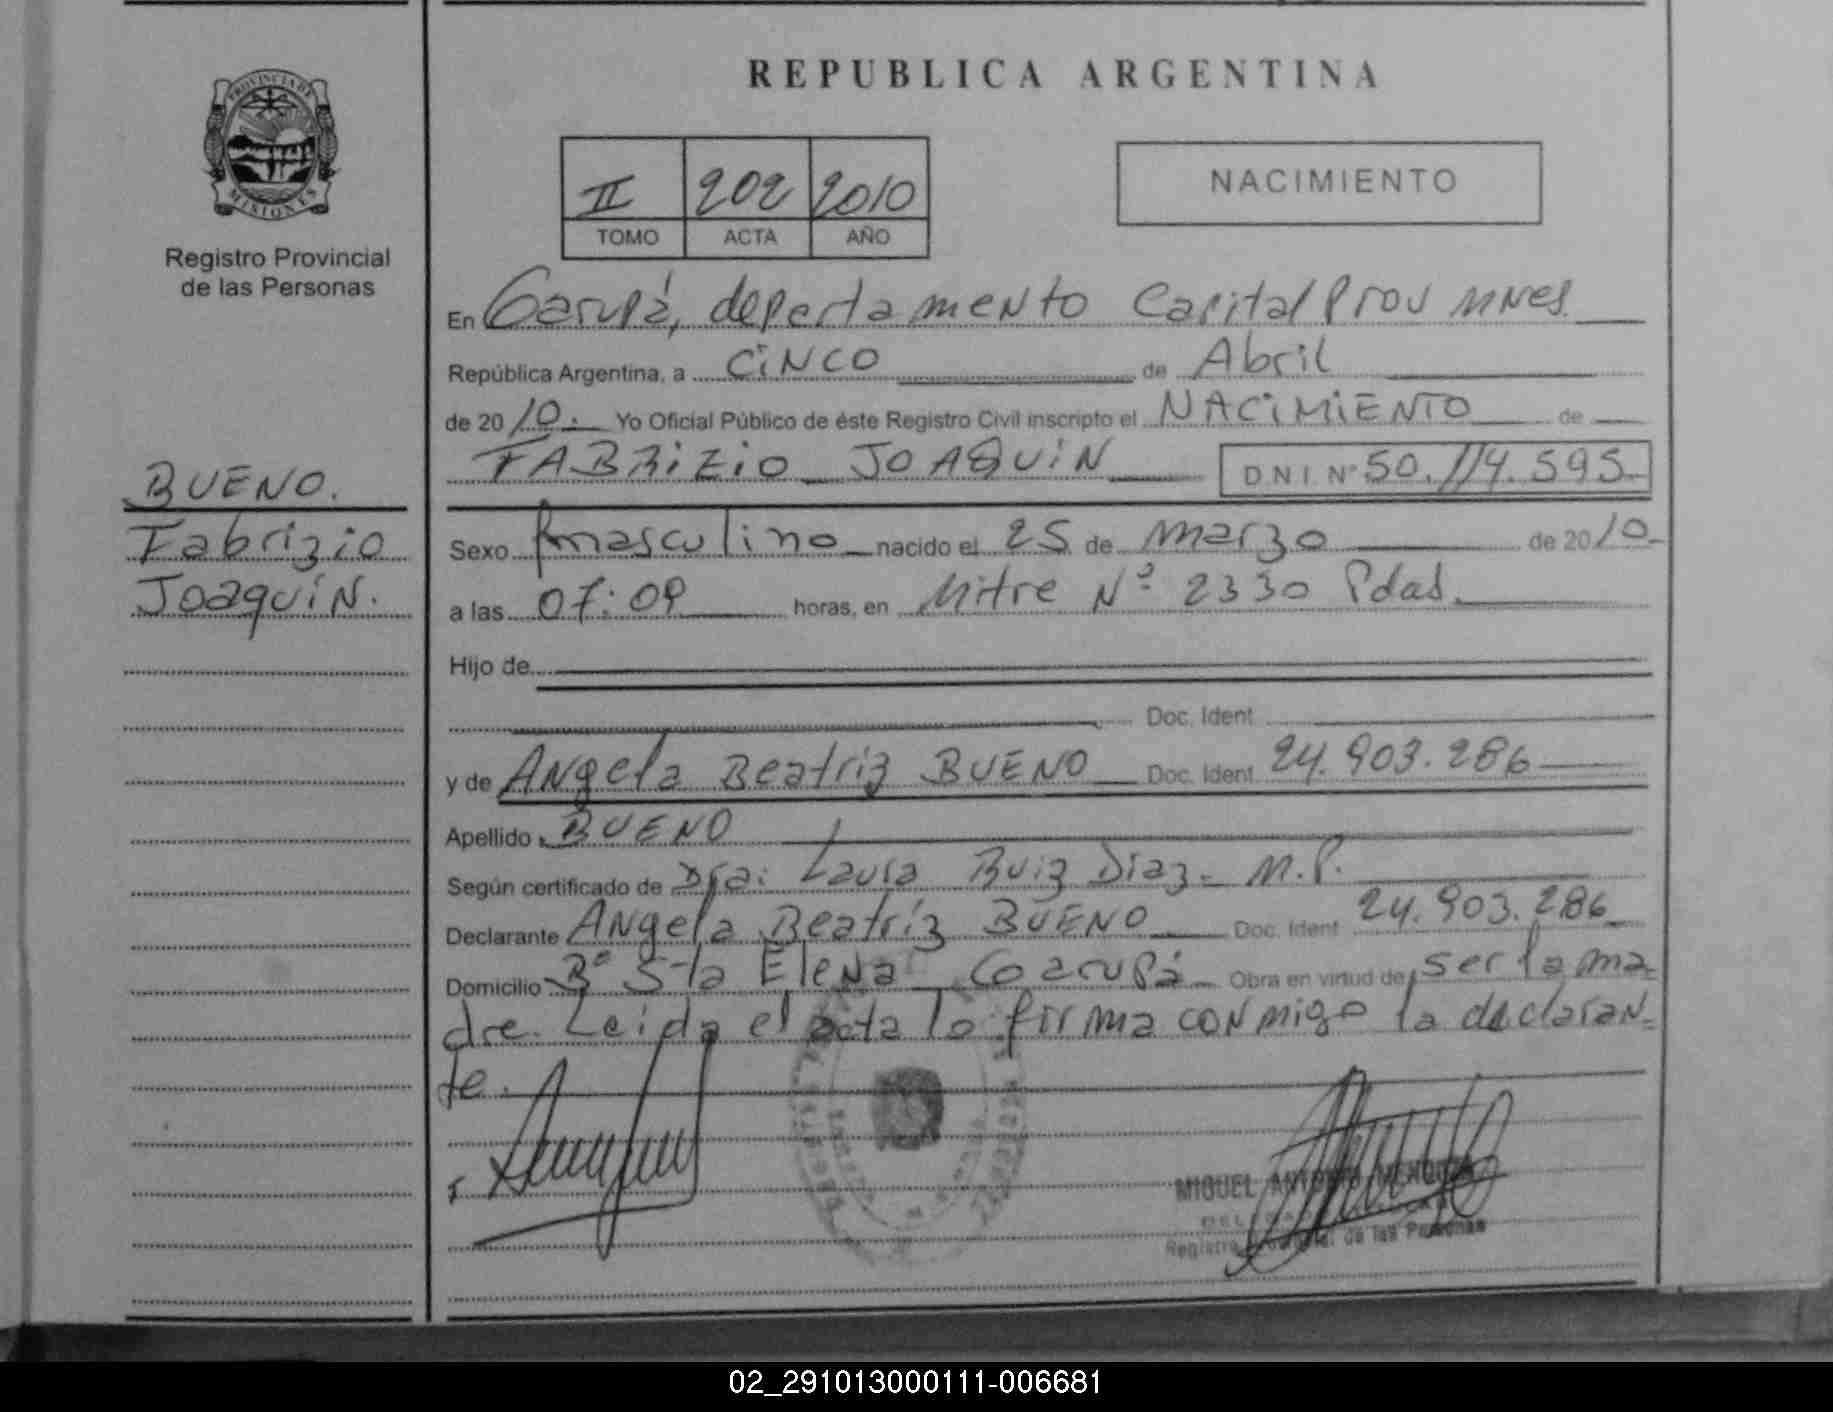 REPUBLICA ARGENTINA
PROVINCIA DE
MISIONES
Registro Provincial
de las Personas
II 202 2010
TOMO ACTA AÑO
NACIMIENTO
En Garupá, departamento Capital Prov Mnes.
República Argentina, a CINCO de Abril
de 2010. Yo Oficial Público de éste Registro Civil inscripto el NACIMIENTO de
FABRIZIO JOAQUIN D N I. N° 50.114.595
BUENO.
Fabrizio
Joaquín.
Sexo masculino nacido el 25 de marzo de 2010
a las 07:09 horas, en Mitre N° 2330 Pdas.
Hijo de
Doc. Ident
y de Angela Beatriz BUENO Doc. Ident 24.903.286
Apellido BUENO
Según certificado de Dra: Laura Ruiz Diaz. M.P.
Declarante Angela Beatríz BUENO Doc. Ident 24.903.286
Domicilio B° Sta Elena Garupá Obra en virtud de ser la ma=
dre. Leida el acta lo firma conmigo la declaran=
te.
MIGUEL ANTONIO MENDOZA
Registro Provincial de las Personas
02_291013000111-006681